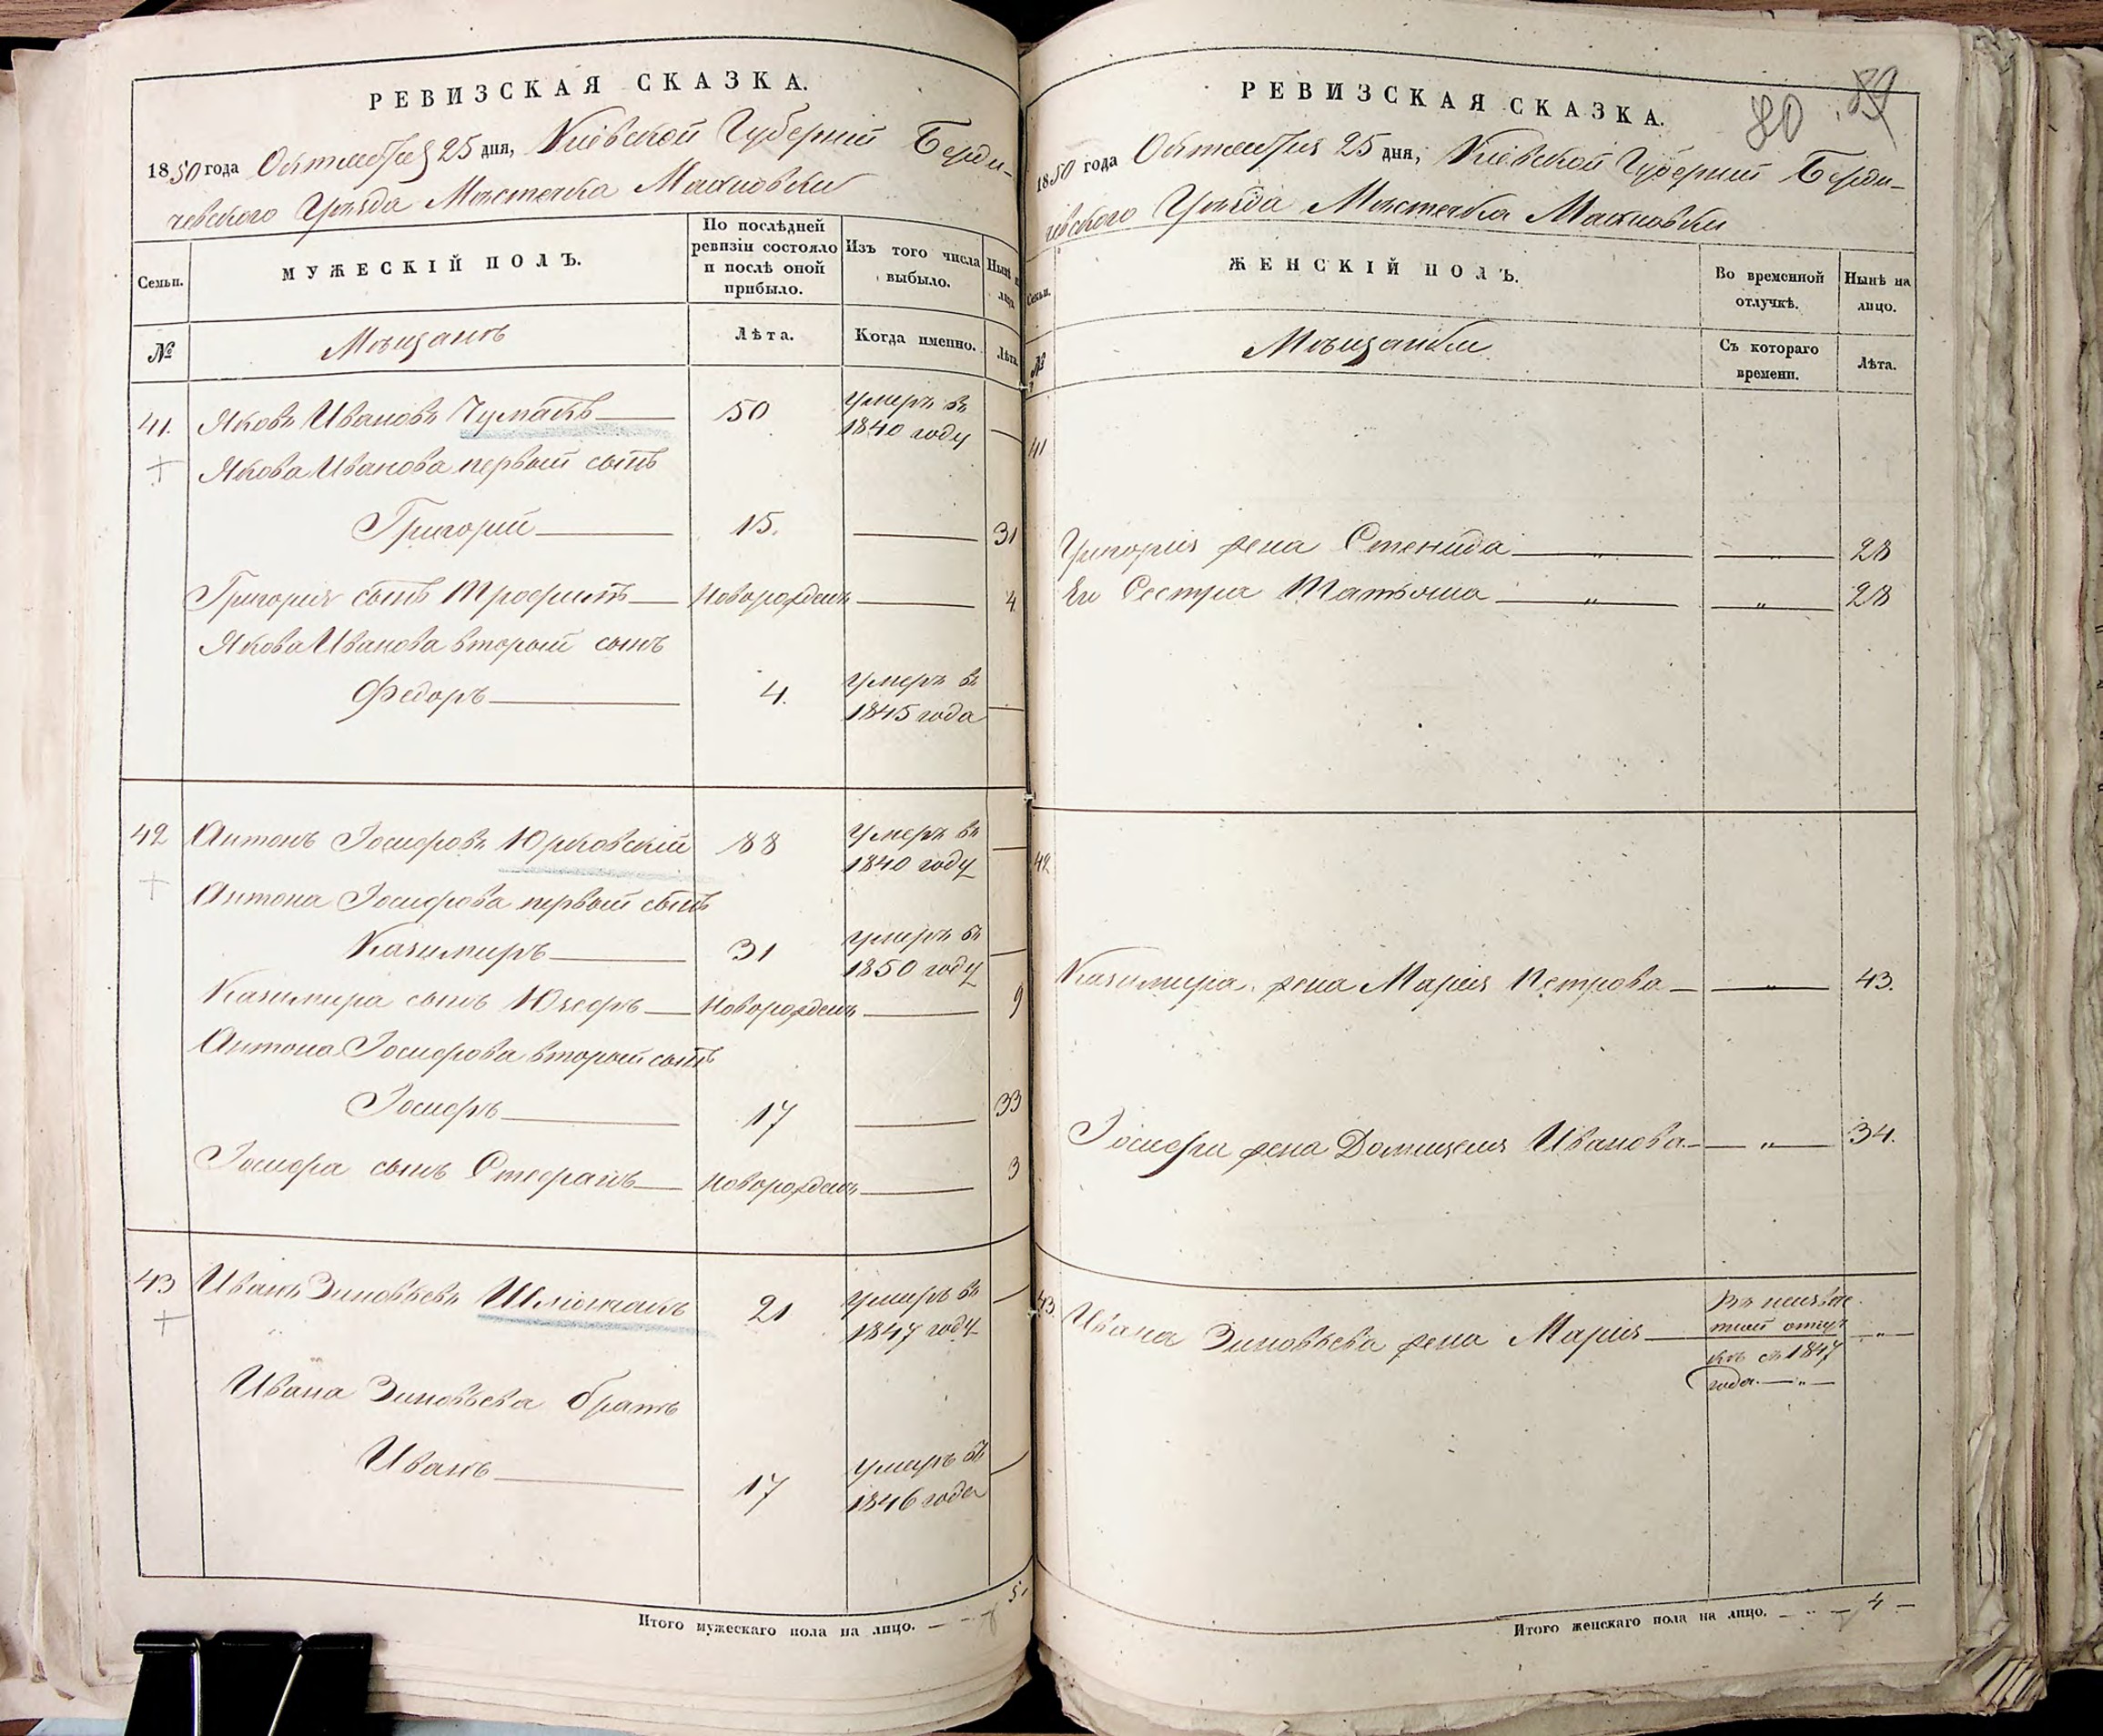 РЕВИЗСКАЯ СКАЗКА.
1850 года Октября 25 дня, Кіевской Губерніи Берди-
чевскаго Уѣзда Мѣстечка Махновки
Семьи.
МУЖЕСКІЙ ПОЛЪ.
По послѣдней ревизіи состояло и послѣ оной прибыло.
Изъ того числа выбыло.
Нынѣ на лицо
№
Мѣщанъ
Лѣта.
Когда именно.
Лѣта.
41. Яковъ Ивановъ Чумакъ 50 умеръ въ
1840 году
Якова Иванова первый сынъ
Григорій 15. 31
Григорія сынъ Трофимъ новорожденъ 4
Якова Иванова второй сынъ
Федоръ 4. умеръ въ
1845 года
42 Антонъ Іосифовъ Юрковскій 88 умеръ въ
1840 году
Антона Іосифова первый сынъ
Казимиръ 31 умеръ въ
1850 году
Казимира сынъ Юзефъ новорожденъ 9
Антона Іосифова второй сынъ
Іосифъ 17 33
Іосифа сынъ Стефанъ новорожденъ 3
43 Иванъ Зиновьевъ 21 умеръ въ
1847 году
Ивана Зиновьева братъ
Иванъ 17 умеръ въ
1846 года
5
Итого мужескаго пола на лицо.
РЕВИЗСКАЯ СКАЗКА.
80 89
1850 года Октября 25 дня, Кіевской Губерніи Берди-
чевскаго Уѣзда Мѣстечка Махновки
Семьи.
ЖЕНСКІЙ ПОЛЪ.
Во временной отлучкѣ.
Нынѣ на лицо.
№
Мѣщанки
Съ котораго времени.
Лѣта.
41
Григорія жена Степнида „ „ 28
Его Сестра Татьяна „ „ 28
42
Казимира жена Марія Петрова „ 43.
Іосифа жена Домицеля Иванова „ 34.
43. Ивана Зиновьева жена Марія
въ неизвѣс-
тной отлуч-
кѣ съ 1847
года „
Итого женскаго пола на лицо. 4